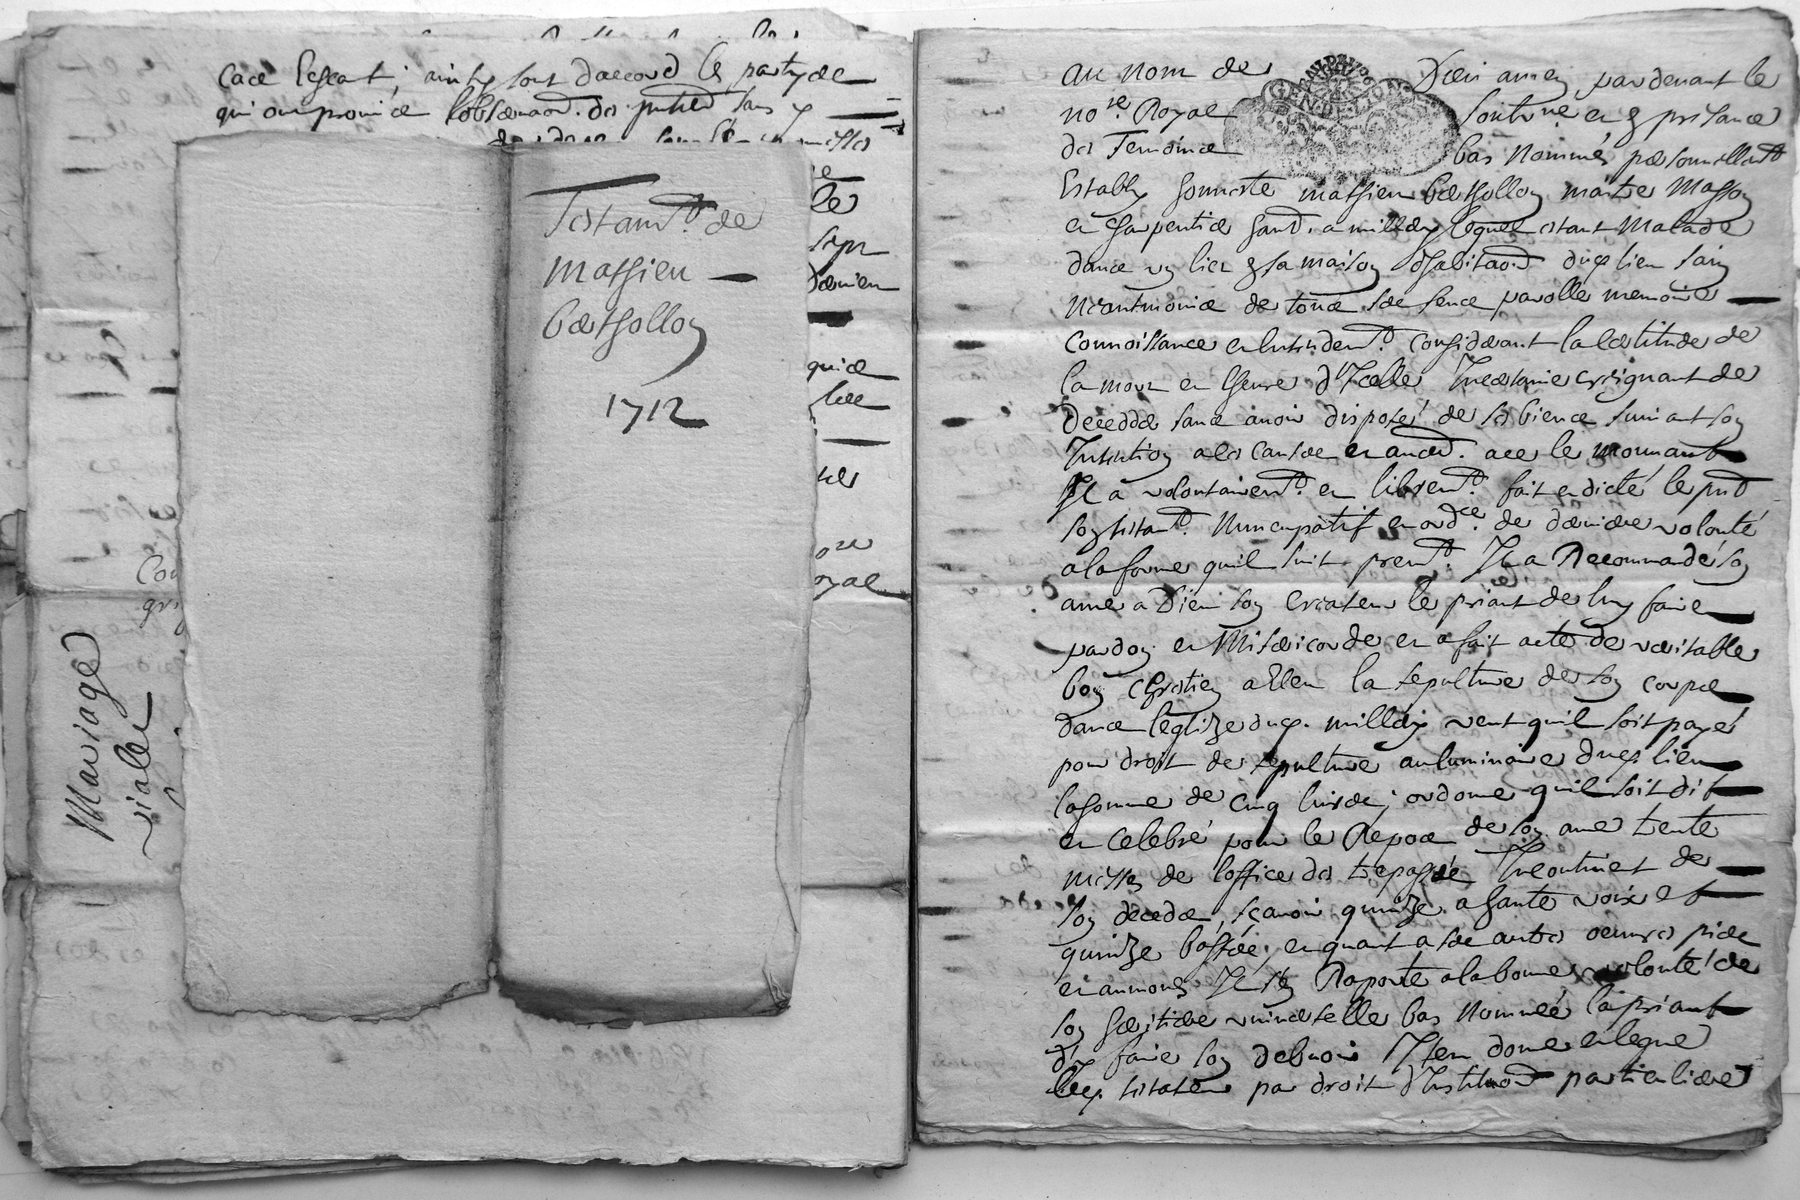 cace lescart; ainsy sont daccord les partyes
qui ont promis lobservaon. des pntes sans
Testamt. de
Mathieu
Berthollon
1712
Mariage
vialer
au nom de Dieu amen, pardevant le
nore. Royal soubsne et presance
des Temoins bas nommés personnellemt
Estably honneste mathieu Berthollon maitre Masson
et charpentier hant. a millery lequel estant Malade
dans un lict de sa maison dhabitaon duq lieu sain
neantmoins de tous ses sence parolle memoire
connoissance et entendemt. considerant la certitude de
la mort et lheure d'Icelle Incertaine craignant de
decedder sans avoir disposé de ses biens suivant son
Intention a ces causes et aud. aee le mouvant
Il a volontairemt. et libremt. fait et dicté le pnt
son testamt. nuncupatif et ordce. de derniere volonté
a la forme quil suit premt. Il a Recommandé son
ame a Dieu son createur le priant de luy faire
pardon et Misericorde et a fait acte de veritable
bon chrestien a Elleu la sepulture de son corps
dans leglize duq. millery veut quil soit payé
pour droit de sepulture au luminaire duq lieu
la somme de cinq livres; ordonne quil soit dit
et celebré pour le Repos de son ame trente
messes de loffice des trepassés Incontinet
son deceds, sçavoir quinze a haute voix et
quinze basses; et quant a ses autres oeuvres pies
et aumones Il s'en Raporte a la bonne volonté de
son heritiere universelle bas nommée la priant
d'y faire son debvoir Item donne et legue
led. testateur par droit d'Instituon particuliere